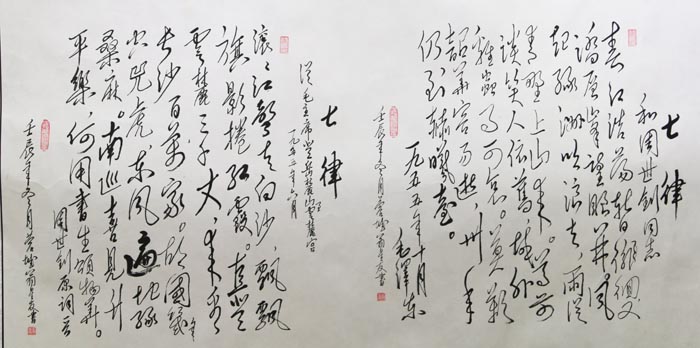 七律
和周世钊同志
春江浩荡，暂徘徊，又
踏层峯望眼开。风
起绿洲吹浪去，雨从
青野上山来。尊前
谈笑人依旧，域外
鸡虫事可哀。莫叹
韶华容易逝，卅年
仍到赫曦台。
一九五五年十月
毛泽东
壬辰年冬月
七律
从毛主席登岳麓山至云麓宫
一九五二年六月
滚滚江声走白沙，飘飘
旗影捲红霞。直登
云麓三千丈，来看
长沙百万家。故国几年
空兕虎，东风遍地绿
桑麻。南巡喜见升
平乐，何用书生颂物华。
周世钊原词
壬辰年冬月